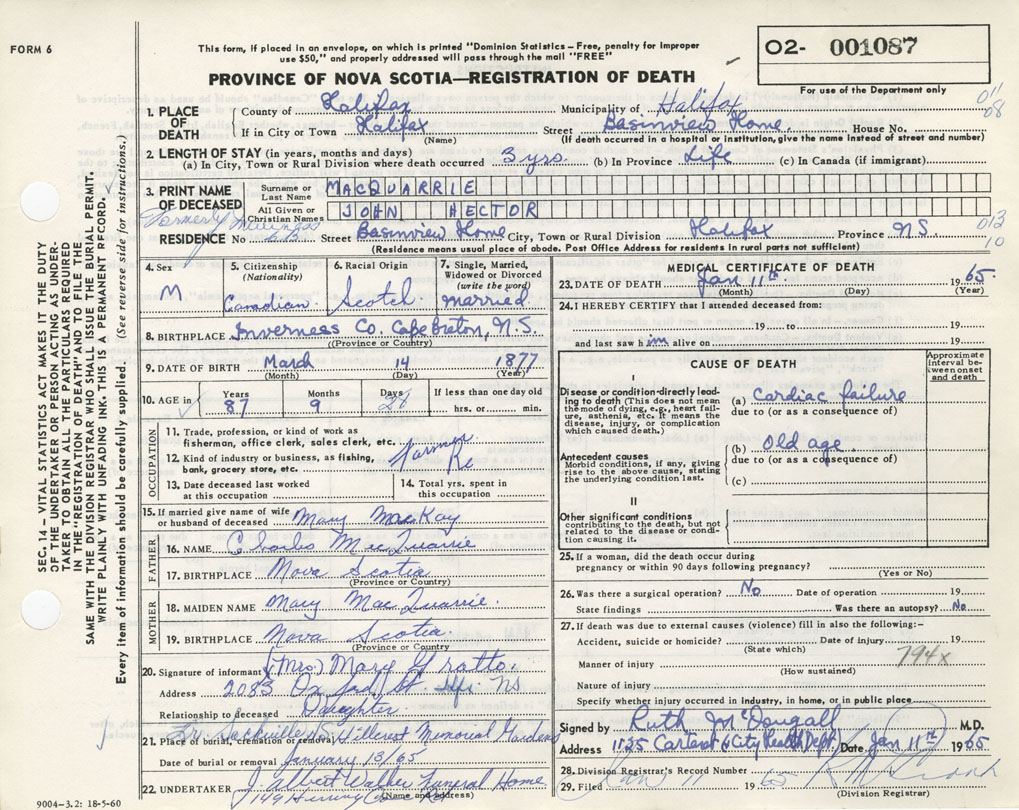 FORM 6
This form, if placed in an envelope, on which is printed "Dominion Statistics - Free, penalty for improper
use $50," and properly addressed will pass through the mail "FREE"
O2- 001087
For use of the Department only
PROVINCE OF NOVA SCOTIA—REGISTRATION OF DEATH
011
08
1. PLACE OF DEATH County of Halifax Municipality of Halifax
If in City or Town Halifax Street Basinview Home House No.
(Name) (If death occurred in a hospital or institution, give the name instead of street and number)
2. LENGTH OF STAY (in years, months and days)
(a) In City, Town or Rural Division where death occurred 3 yrs. (b) In Province Life (c) In Canada (if immigrant)
3. PRINT NAME OF DECEASED Surname or Last Name MACQUARRIE
All Given or Christian Names JOHN HECTOR
Formerly
RESIDENCE No Street Basinview Home City, Town or Rural Division Halifax Province N.S.
013
10
(Residence means usual place of abode. Post Office Address for residents in rural parts not sufficient)
4. Sex M.
5. Citizenship (Nationality) Canadian
6. Racial Origin Scotch
7. Single, Married, Widowed or Divorced (write the word) married
8. BIRTHPLACE Inverness Co. Cape Breton, N.S.
(Province or Country)
9. DATE OF BIRTH March 14 1877
(Month) (Day) (Year)
10. AGE in Years Months Days If less than one day old
87 9 hrs. or min.
OCCUPATION
11. Trade, profession, or kind of work as
fisherman, office clerk, sales clerk, etc. Farmer
12. Kind of industry or business, as fishing,
bank, grocery store, etc. Re
13. Date deceased last worked
at this occupation
14. Total yrs. spent in
this occupation
15. If married give name of wife
or husband of deceased Mary MacKay
FATHER
16. NAME Charles MacQuarrie
17. BIRTHPLACE Nova Scotia
(Province or Country)
MOTHER
18. MAIDEN NAME Mary MacQuarrie
19. BIRTHPLACE Nova Scotia
(Province or Country)
20. Signature of informant (Mrs) Mary Gratto.
Address 2083 Oxford St. Hfx NS
Relationship to deceased Daughter
Lr Sackville NS
21. Place of burial, cremation or removal Hillcrest Memorial Gardens
Date of burial or removal January 13/65
22. UNDERTAKER J. Albert Walker Funeral Home
149
(Name and address)
9004-3.2: 18-5-60
MEDICAL CERTIFICATE OF DEATH
23. DATE OF DEATH Jan 11th 1965
(Month) (Day) (Year)
24. I HEREBY CERTIFY that I attended deceased from:
19 to 19
and last saw him alive on 19
CAUSE OF DEATH
Approximate interval between onset and death
I
Disease or condition directly leading to death (This does not mean the mode of dying, e.g., heart failure, asthenia, etc. It means the disease, injury, or complication which caused death.)
(a) Cardiac failure
due to (or as a consequence of)
Antecedent causes
Morbid conditions, if any, giving rise to the above cause, stating the underlying condition last.
(b) old age
due to (or as a consequence of)
(c)
II
Other significant conditions
contributing to the death, but not related to the disease or condition causing it.
25. If a woman, did the death occur during
pregnancy or within 90 days following pregnancy?
(Yes or No)
26. Was there a surgical operation? No Date of operation 19
State findings Was there an autopsy? No
27. If death was due to external causes (violence) fill in also the following:-
Accident, suicide or homicide? Date of injury 19
(State which)
794x
Manner of injury
(How sustained)
Nature of injury
Specify whether injury occurred in industry, in home, or in public place
Signed by Ruth McDougall M.D.
Address 1135 Carteret (City Health Dept) Date Jan 11th 1965
28. Division Registrar's Record Number
29. Filed Jan 11 1965
(Division Registrar)
SEC. 14 - VITAL STATISTICS ACT MAKES IT THE DUTY
OF THE UNDERTAKER OR PERSON ACTING AS UNDER-
TAKER TO OBTAIN ALL THE PARTICULARS REQUIRED
IN THE "REGISTRATION OF DEATH" AND TO FILE THE
SAME WITH THE DIVISION REGISTRAR WHO SHALL ISSUE THE BURIAL PERMIT.
WRITE PLAINLY WITH UNFADING INK. THIS IS A PERMANENT RECORD.
Every item of information should be carefully supplied. (See reverse side for instructions.)